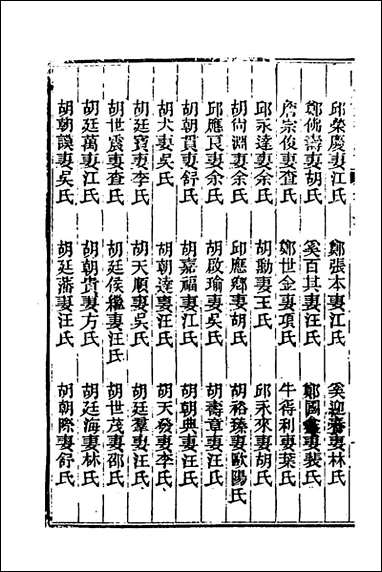 邱榮慶妻江氏 鄭張本妻江氏 奚迎 妻林氏
鄭侜壽妻胡氏 奚百其妻汪氏 鄭國 妻裴氏
詹宗俊妻查氏 鄭世金妻項氏 牛得利妻葉氏
邱永達妻余氏 胡勛妻王氏 邱永來妻胡氏
胡尙淵妻余氏 邱應鄕妻胡氏 胡裕臻妻歐陽氏
邱應艮妻余氏 胡啟瑜妻吳氏 胡壽章妻汪氏
胡朝貫妻舒氏 胡嘉福妻江氏 胡朝典妻汪氏
胡大妻吳氏 胡朝逵妻汪氏 胡天發妻李氏
胡廷寶妻李氏 胡天順妻吳氏 胡廷羣妻汪氏
胡世震妻查氏 胡廷侯繼妻汪氏 胡世茂妻邵氏
胡廷萬妻江氏 胡朝貴妻方氏 胡廷海妻林氏
胡朝謨妻吳氏 胡廷藩妻汪氏 胡朝際妻舒氏